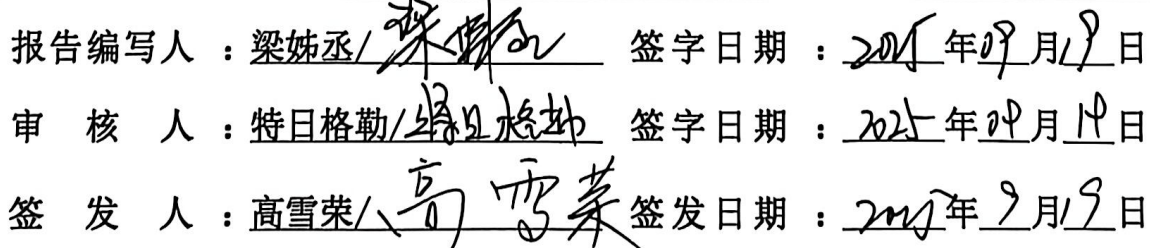 报告编写人：梁姊丞/梁姊丞 签字日期：2025年09月19日
审核人：特日格勒/特日格勒 签字日期：2025年09月19日
签发人：高雪荣/高雪荣 签发日期：2025年9月19日